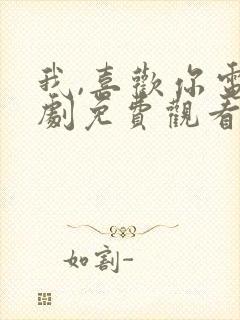 我,喜歡你電
劇免費觀看
如割-